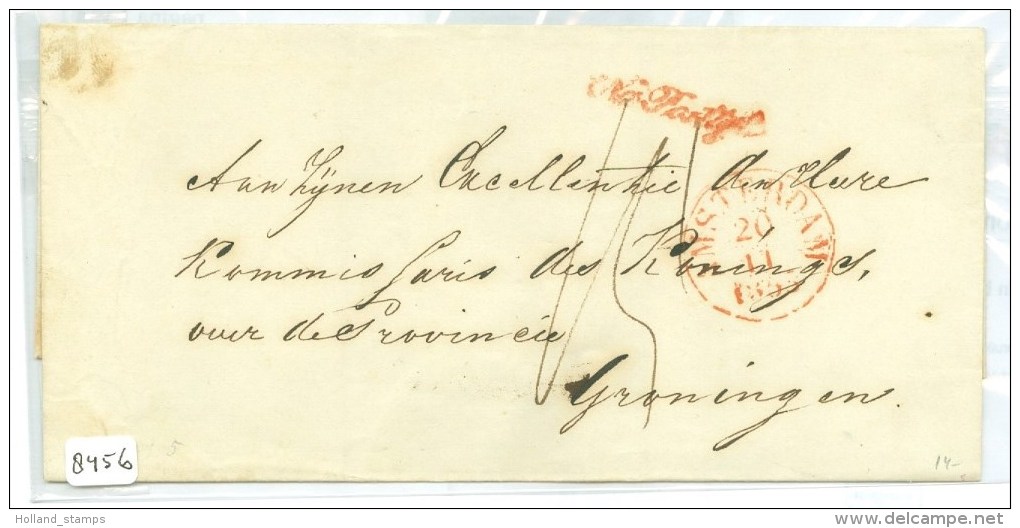 Na Posttijd
Aan Zijnen Excellentie den Heere
AMSTERDAM
20
11
185
Kommissaris des Konings,
over de Provincie
Groningen.
8456
14-
Holland_stamps
delcampe.net